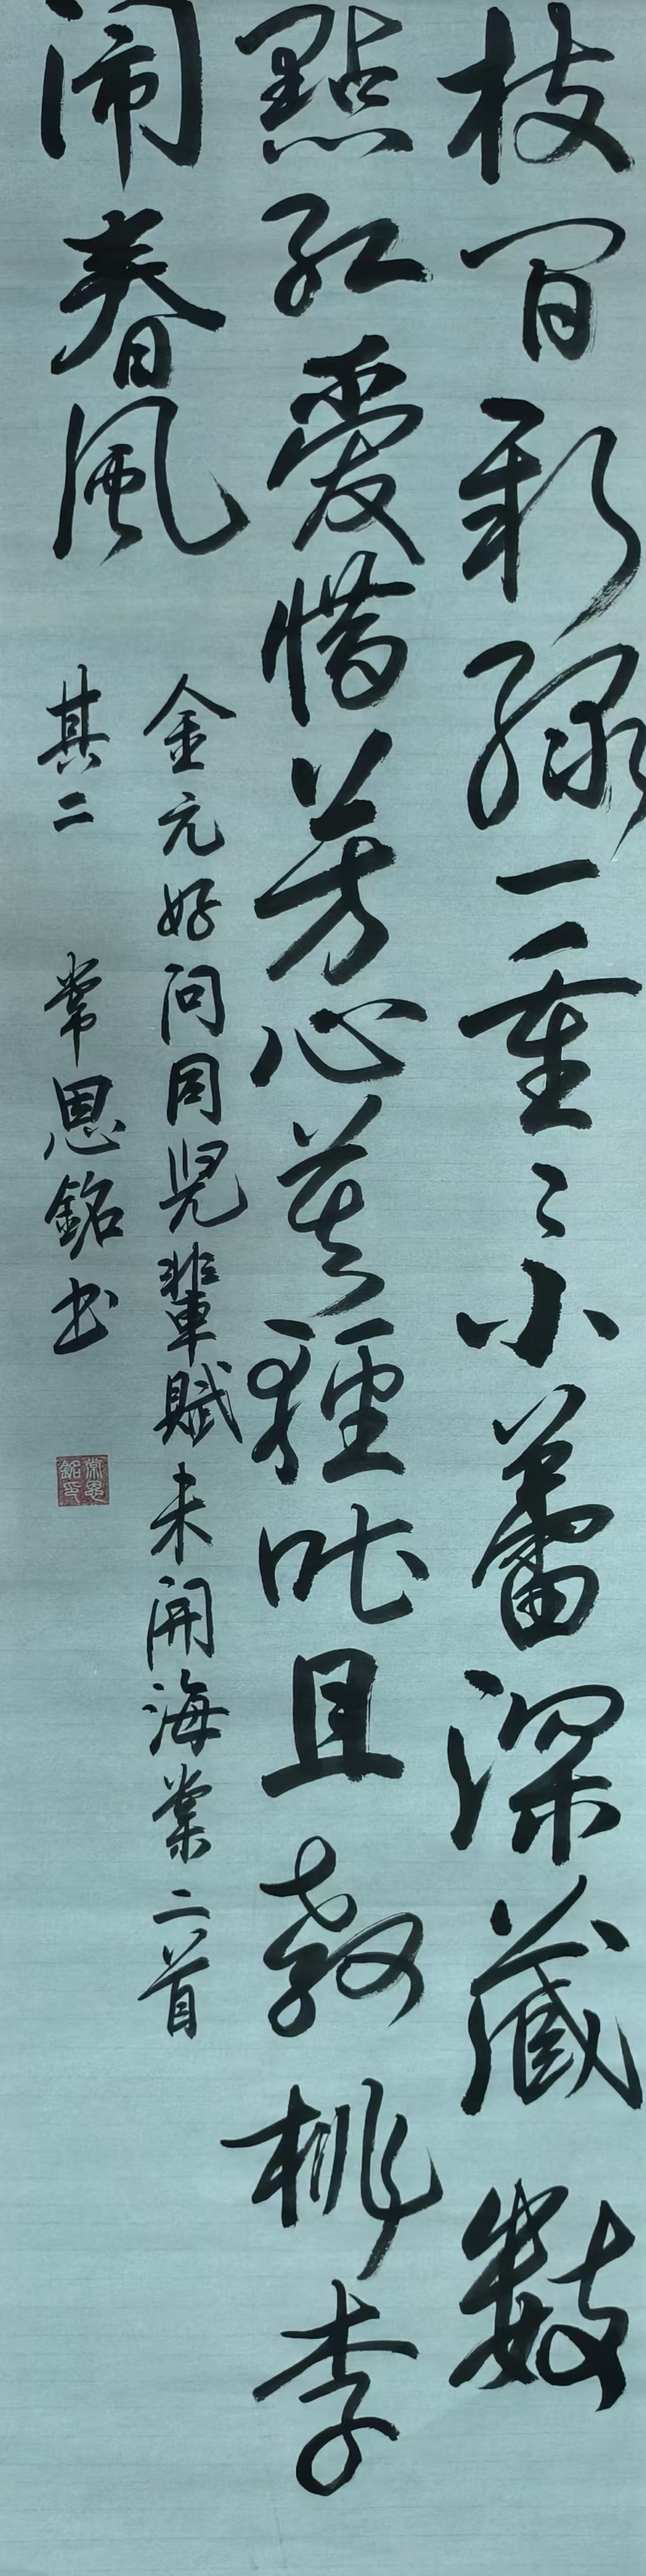 枝間新緑一重々小蕾深藏數
點紅愛惜芳心莫輕吐且教桃李
闹春風
金元好问同児輩賦未開海棠二首
其二 常恩銘书
常恩銘印